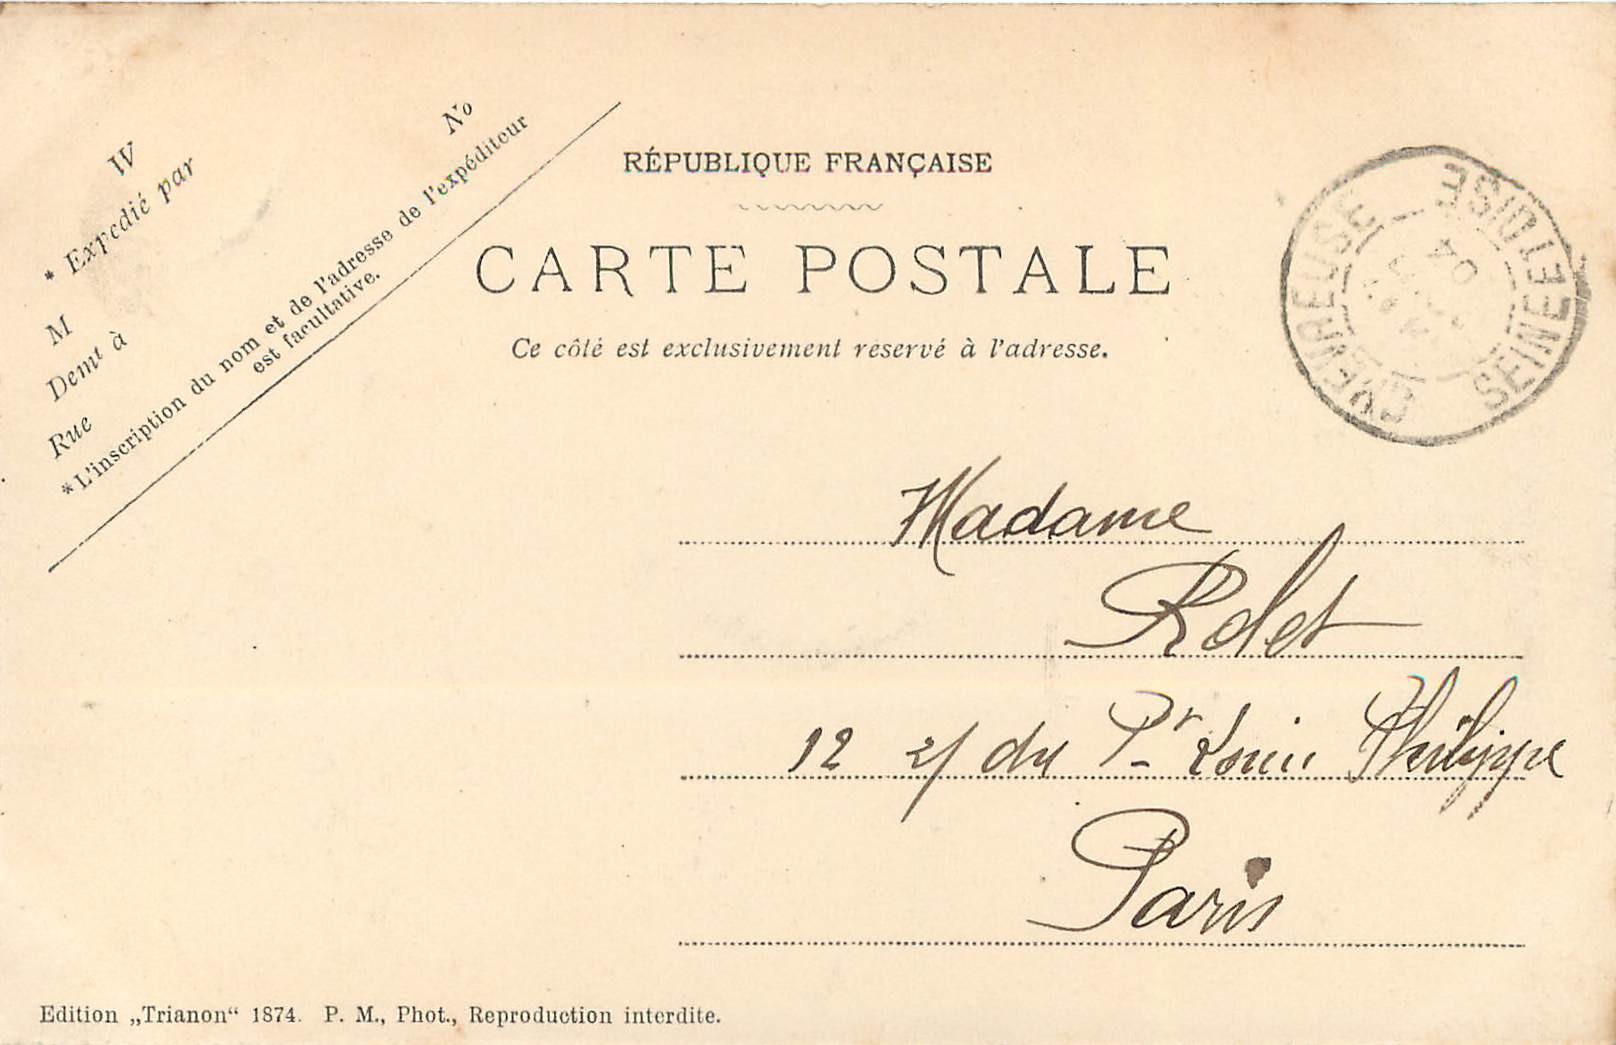 W
No
* Expedié par
M
Demt à
Rue
*L'inscription du nom et de l'adresse de l'expéditeur
est facultative.
RÉPUBLIQUE FRANÇAISE
CARTE POSTALE
Ce côté est exclusivement réservé à l'adresse.
CHEVREUSE
SEINE ET OISE
04
Madame
Rolet
12 r/ du Pt Louis Philippe
Paris
Edition „Trianon“ 1874. P. M., Phot., Reproduction interdite.